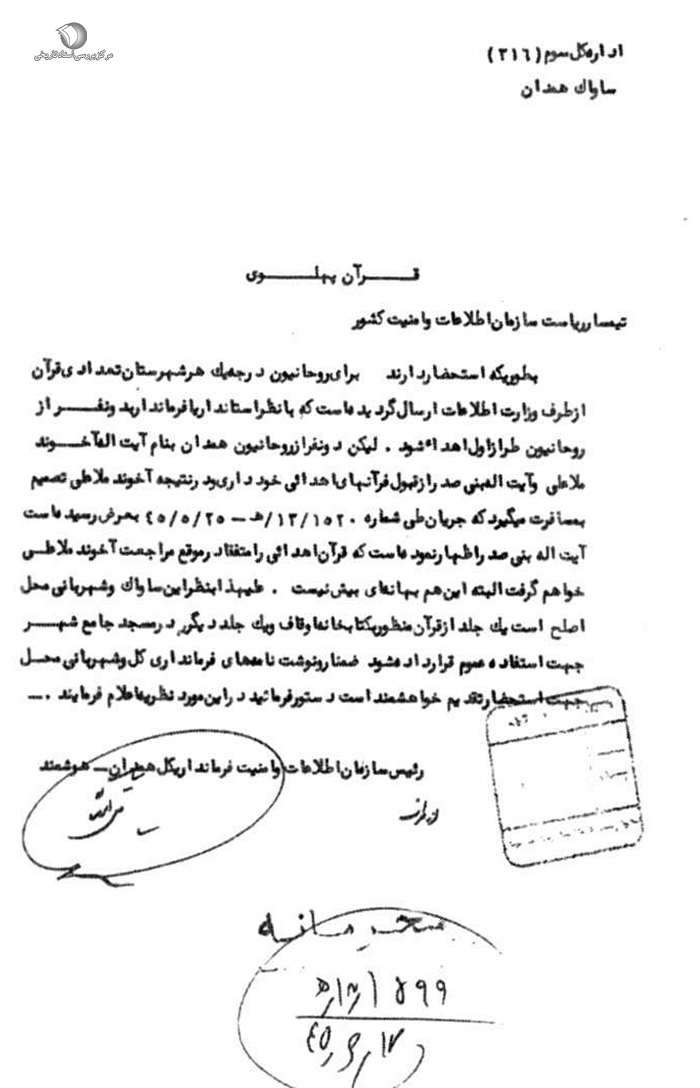 مرکز بررسی اسناد تاریخی
اداره کل سوم (۳۱۶)
ساواك همدان
قـــرآن پهلـــوی
تیمسار ریاست سازمان اطلاعات و امنیت کشور
بطوریکه استحضار دارند برای روحانیون درجه یك هر شهرستان تعدادی قرآن
از طرف وزارت اطلاعات ارسال گردیده است که با نظر استاندار یا فرماندار بدو نفـــر از
روحانیون طراز اول اهداء شود . لیکن دو نفر از روحانیون همدان بنام آیت اله آخـــوند
ملاعلی و آیت اله بنی صدر از قبول قرآنهای اهدائی خودداری و در نتیجه آخوند ملاعلی تصمیم
بمسافرت میگیرد که جریان طی شماره ۱۵۲۰/۱۳/هـ – ۴۵/۵/۲۵ بعرض رسیده است
آیت اله بنی صدر اظهار نموده است که قرآن اهدائی را متعقاد رموقع مراجعت آخوند ملاعلـــی
خواهم گرفت البته این هم بهانه ای بیش نیست . علیهذا بنظر این ساواك و شهربانی محل
اصلح است یك جلد از قرآن منظور بکتابخانه اوقاف و یك جلد دیگر در مسجد جامع شهـــر
جهت استفاده عموم قرار داده شود ضمنا رونوشت نامه های فرمانداری کل و شهربانی محـــل
جهت استحضار تقدیم خواهشمند است دستور فرمائید در این مورد نظریه اعلام فرمایند .ــ
رئیس سازمان اطلاعات و امنیت فرمانداریکل همدان ــ هوشمند
محرمانه
۱۵۹۹